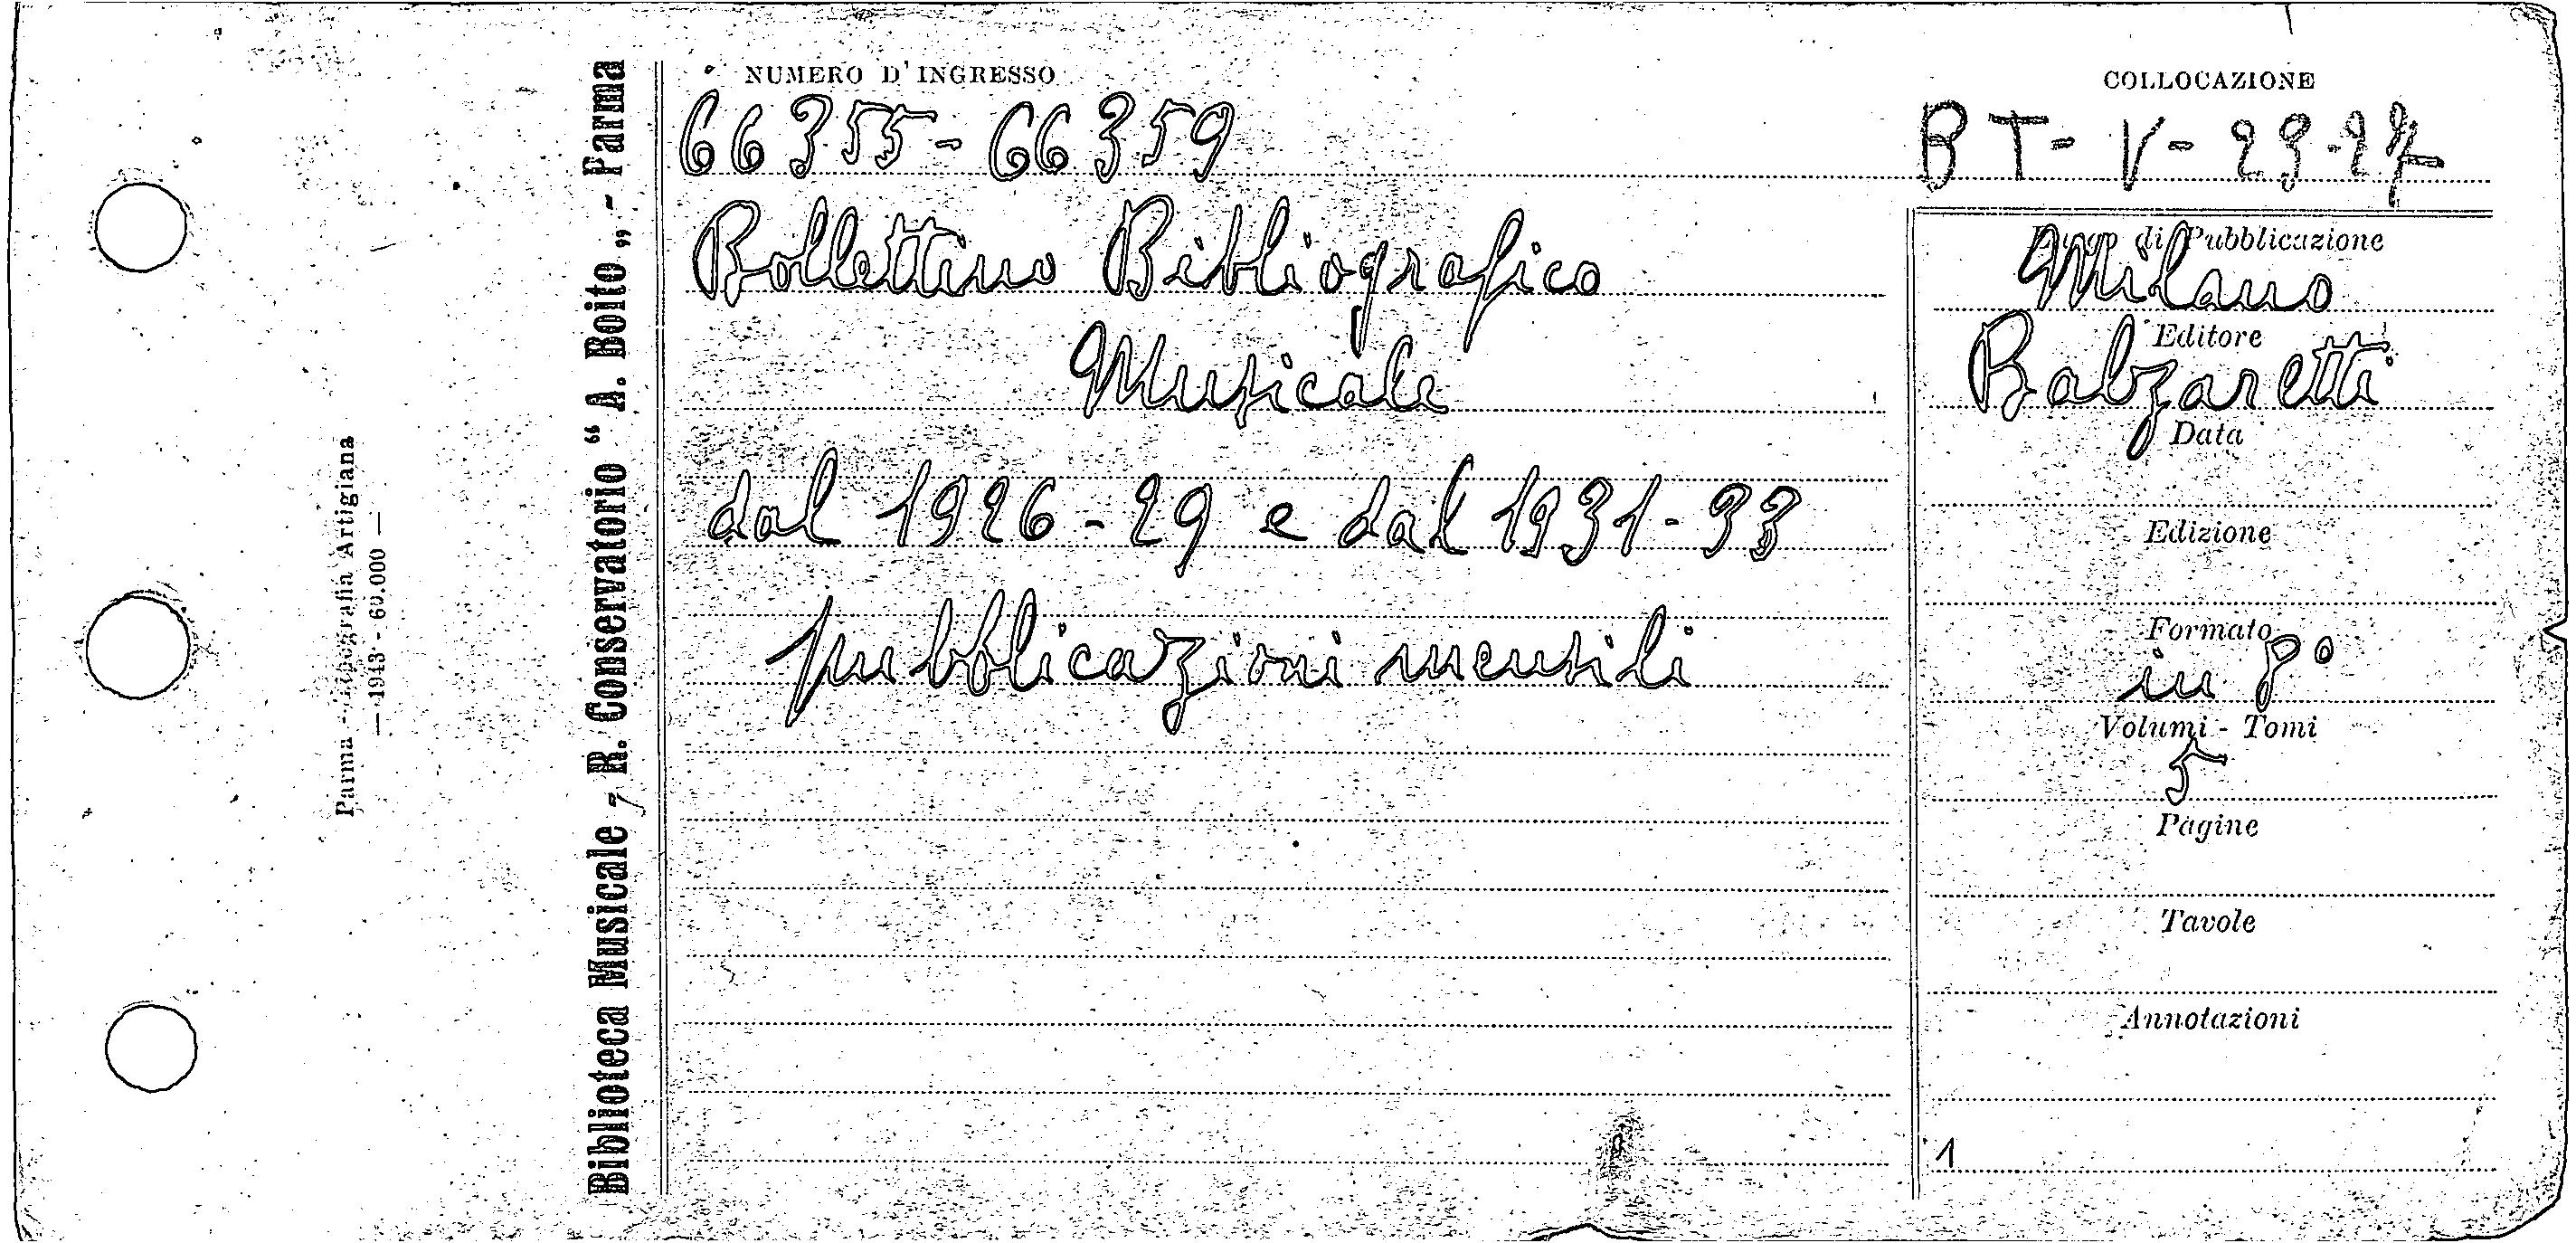 NUMERO D'INGRESSO
66355-66359
COLLOCAZIONE
BT-V-23-27
Bollettino Bibliografico
Musicale
dal 1926-29 e dal 1931-33
pubblicazioni mensili
Luogo di Pubblicazione
Milano
Editore
Balzaretti
Data
Edizione
Formato
in 8°
Volumi - Tomi
5
Pagine
Tavole
Annotazioni
1
Biblioteca Musicale - R. Conservatorio “ A. Boito „ - Parma
Parma - Tipografia Artigiana
— 1943 - 60.000 —